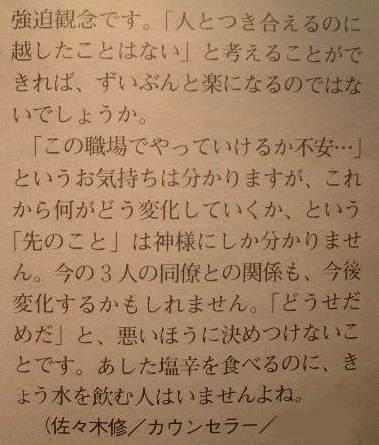 強迫観念です。「人とつき合えるのに
越したことはない」と考えることがで
きれば、ずいぶんと楽になるのではな
いでしょうか。
「この職場でやっていけるか不安…」
というお気持ちは分かりますが、これ
から何がどう変化していくか、という
「先のこと」は神様にしか分かりませ
ん。今の3人の同僚との関係も、今後
変化するかもしれません。「どうせだ
めだ」と、悪いほうに決めつけないこ
とです。あした塩辛を食べるのに、き
ょう水を飲む人はいませんよね。
(佐々木修/カウンセラー/